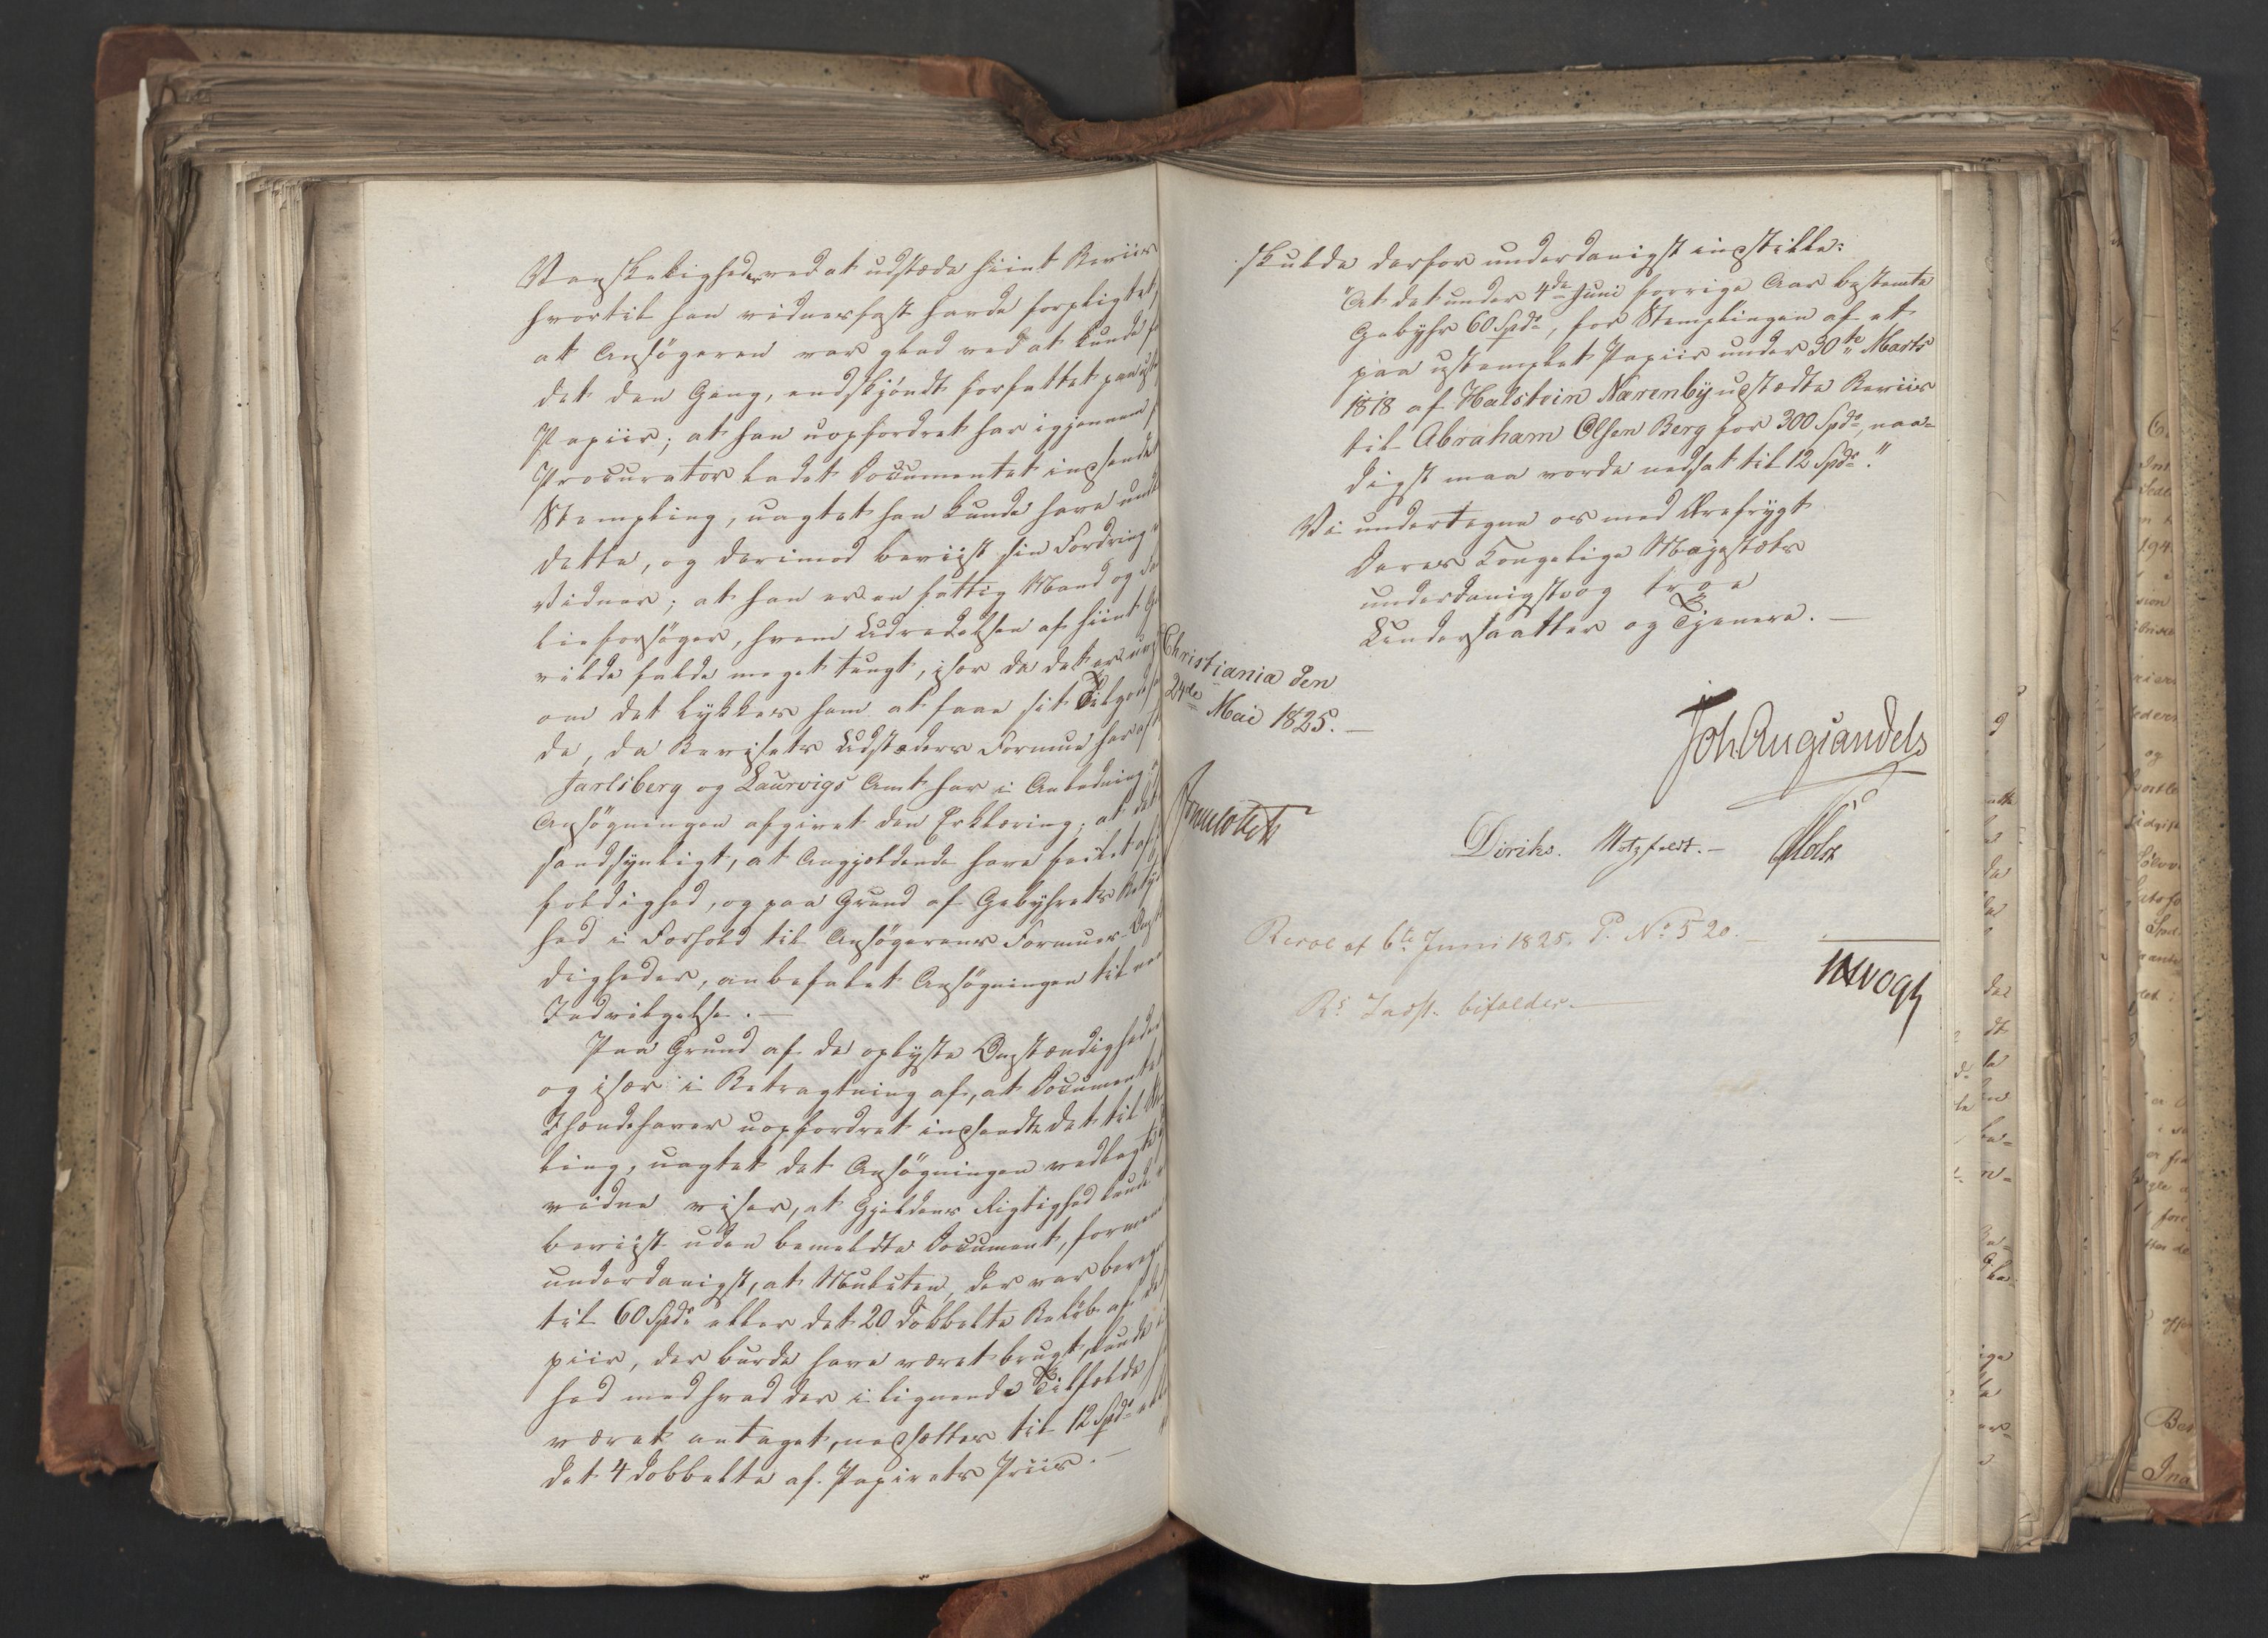 Vanskeligheder ved at udstæde hiint Beviis
hvortil han vidnesfast havde forpligtet
at Ansögeren var glad ved at kunde
det den Gang, endskjöndt forfattet paa
Papiir; at han uopfordret har igjennem
Procurator ladet Documentet indsende
Stempling, uagtet han kunde have
dette, og derimod beviist sin Fordring
Vidner; at han er en fattig Mand og
lieforsörger, hvem Udredelsen af hiint
vilde falde meget tungt, især da det er
om det lykkes ham at faae sit Tilgode
de, da Bevisets Udstæders Formue har
Jarlsberg og Laurvigs Amt har i Anledning
Ansögningen afgivet den Erklæring; at det
sandsynligt, at Angjeldende have feilet af
foldighed, og paa Grund af Gebyhrets
hed i Forhold til Ansögerens Formues-
digheder, anbefalet Ansögningen til
Indvilgelse. —
Paa Grund af de oplyste Omstændigheder
og især i Betragtning af, at Documentets
Ihændehaver uopfordret indsendte det til
ling, uagtet det Ansögningen vedlagte
vidne viser, at Gjeldens Rigtighed kunde
beviist uden bemeldte Document, formene
underdanigst, at Mulcten, der var
til 60 Spd. eller det 20 dobbelte Belöb af det
piir, der burde have været brugt, kunde i
hed med hvad der i lignende Tilfælde
været antaget, nedsættes til 12 Spd.
det 4 dobbelte af Papirets Priis. —
skulde derfor underdanigst indstille:
"At det under 4de Juni forrige Aar bestemte
Gebyhr 60 Spd., for Stemplingen af et
paa ustemplet Papiir under 30te Marts
1818 af Halstein Nærenbÿ udstædte Beviis
til Abraham Olsen Berg for 300 Spd., naa-
digst maa vorde nedsat til 12 Spd."
Vi undertegne os med Ærefrygt
Deres Kongelige Majestæts
underdanigste og troe
Undersaatter og Tjenere. —
Christiania den
24de Mai 1825. —
Joh Aug Sandels
Diriks. Motzfeldt. — Holst
Resol af 6te Juni 1825. P. No 520.
Rs Indst. bifaldes. —
Vogt